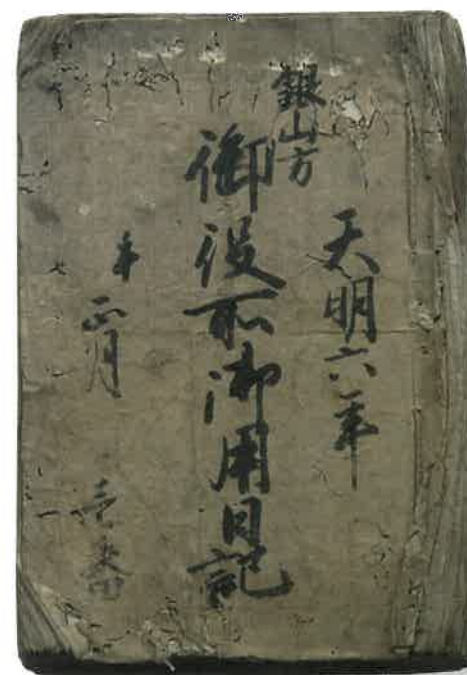 天明六年
銀山方
御役所御用日記
午正月